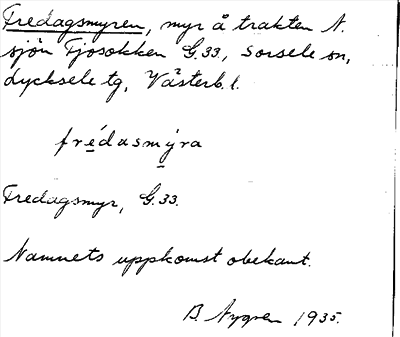 Fredagsmyren, myr å trakten N.
sjön Tjosokken G.33, Sorsele sn,
Lycksele tg, Västerb. l.
frédasmýra
Fredagsmyr, G.33.
Namnets uppkomst obekant.
B. Nygren 1935.